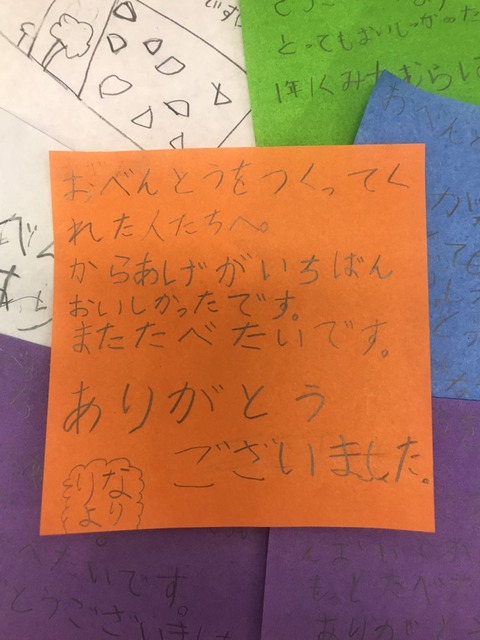 ですし
とってもおいしかった
1年1くみ
おべんとうをつくってく
れた人たちへ。
からあげがいちばん
おいしかったです。
またたべたいです。
ありがとう
ございました。
なり
より
たいです。
とうござい
もっとたべた
ありがと